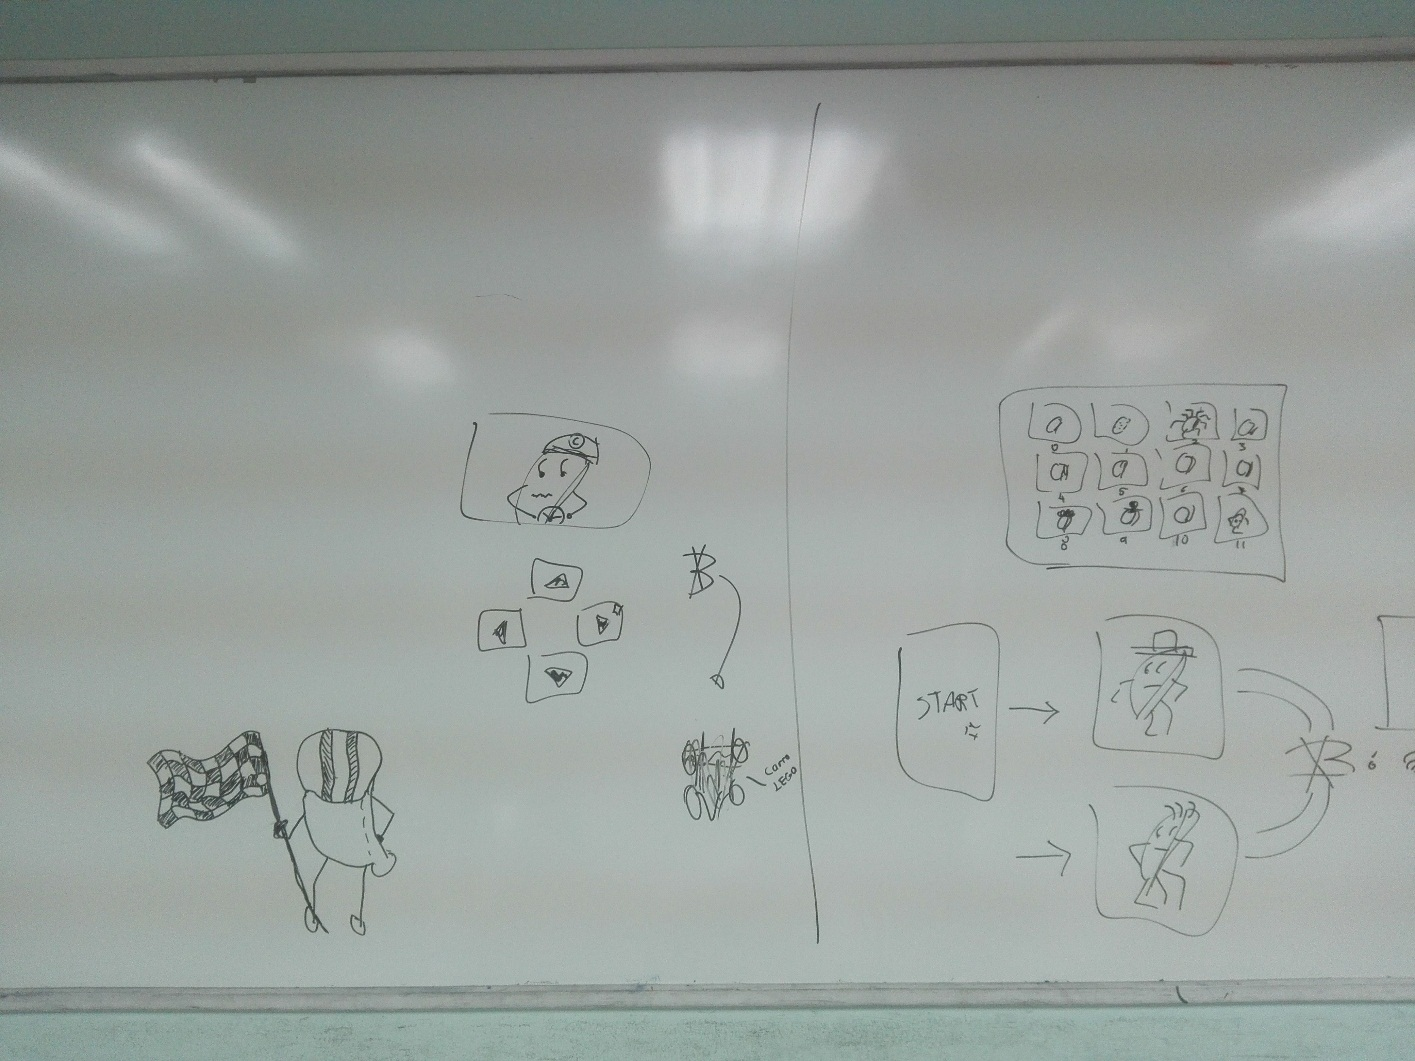 C
Carro
LEGO
0 1 2 3
4 5 6 7
8 9 10 11
START
ó